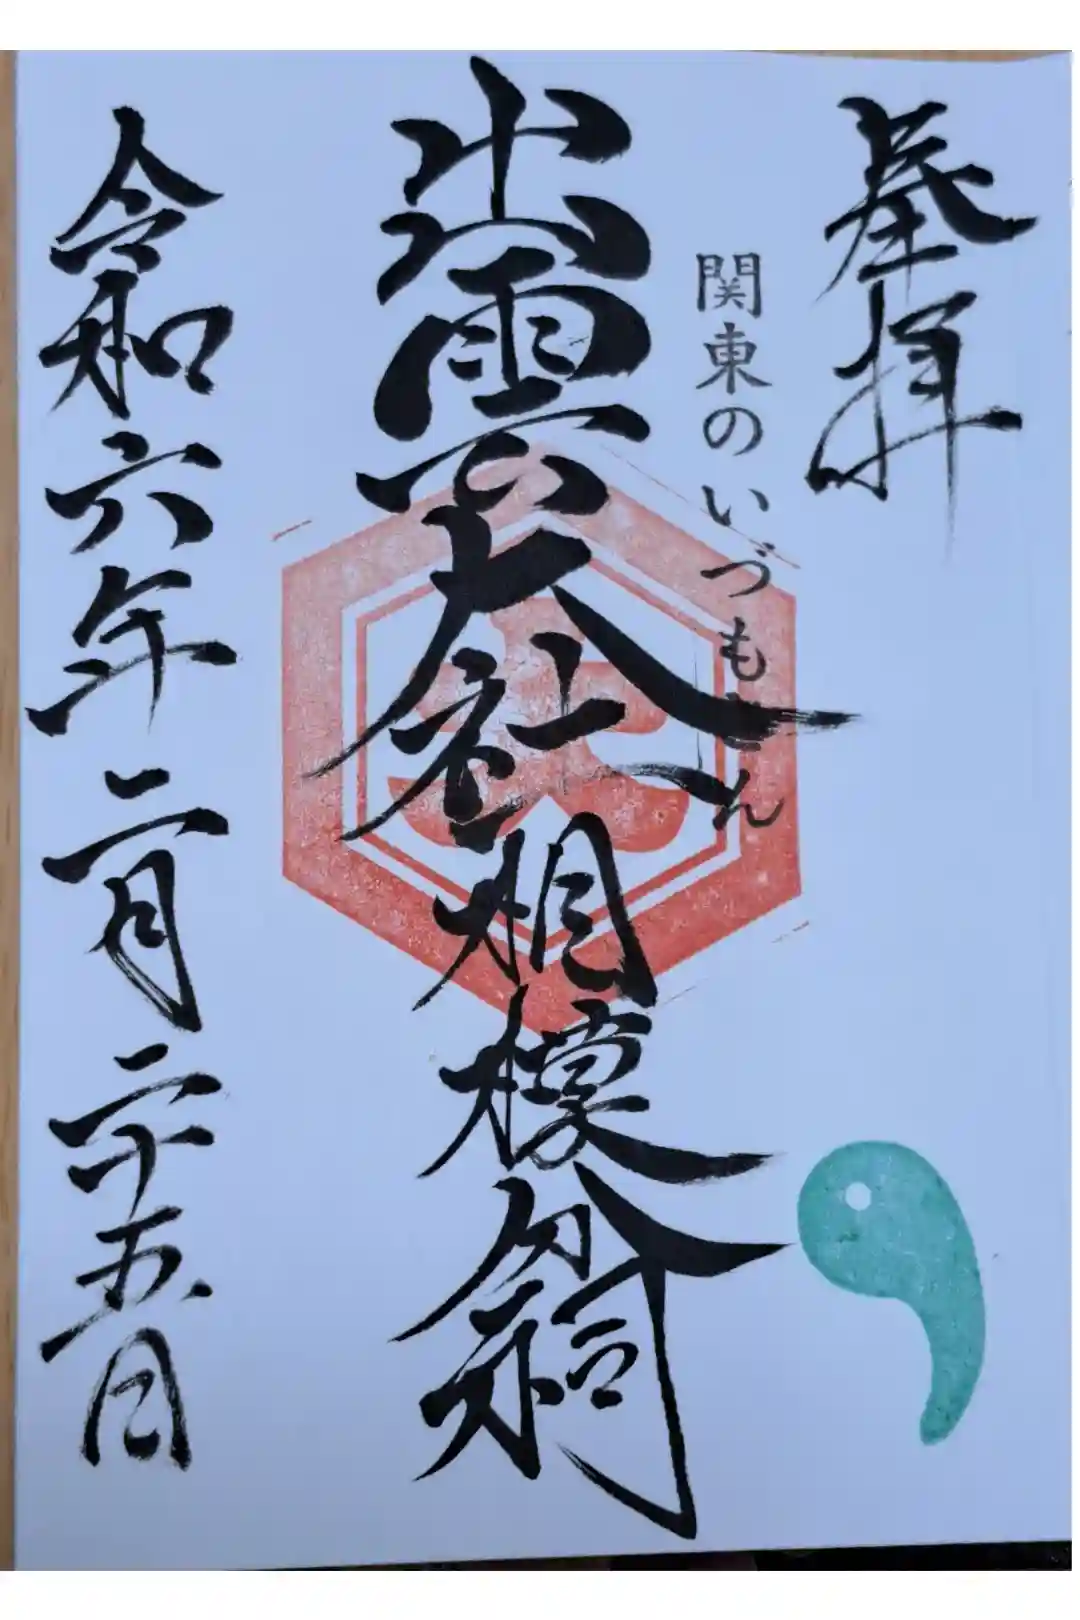 奉拝
関東のいづもさん
出雲大社相模分祠
令和六年二月二十五日